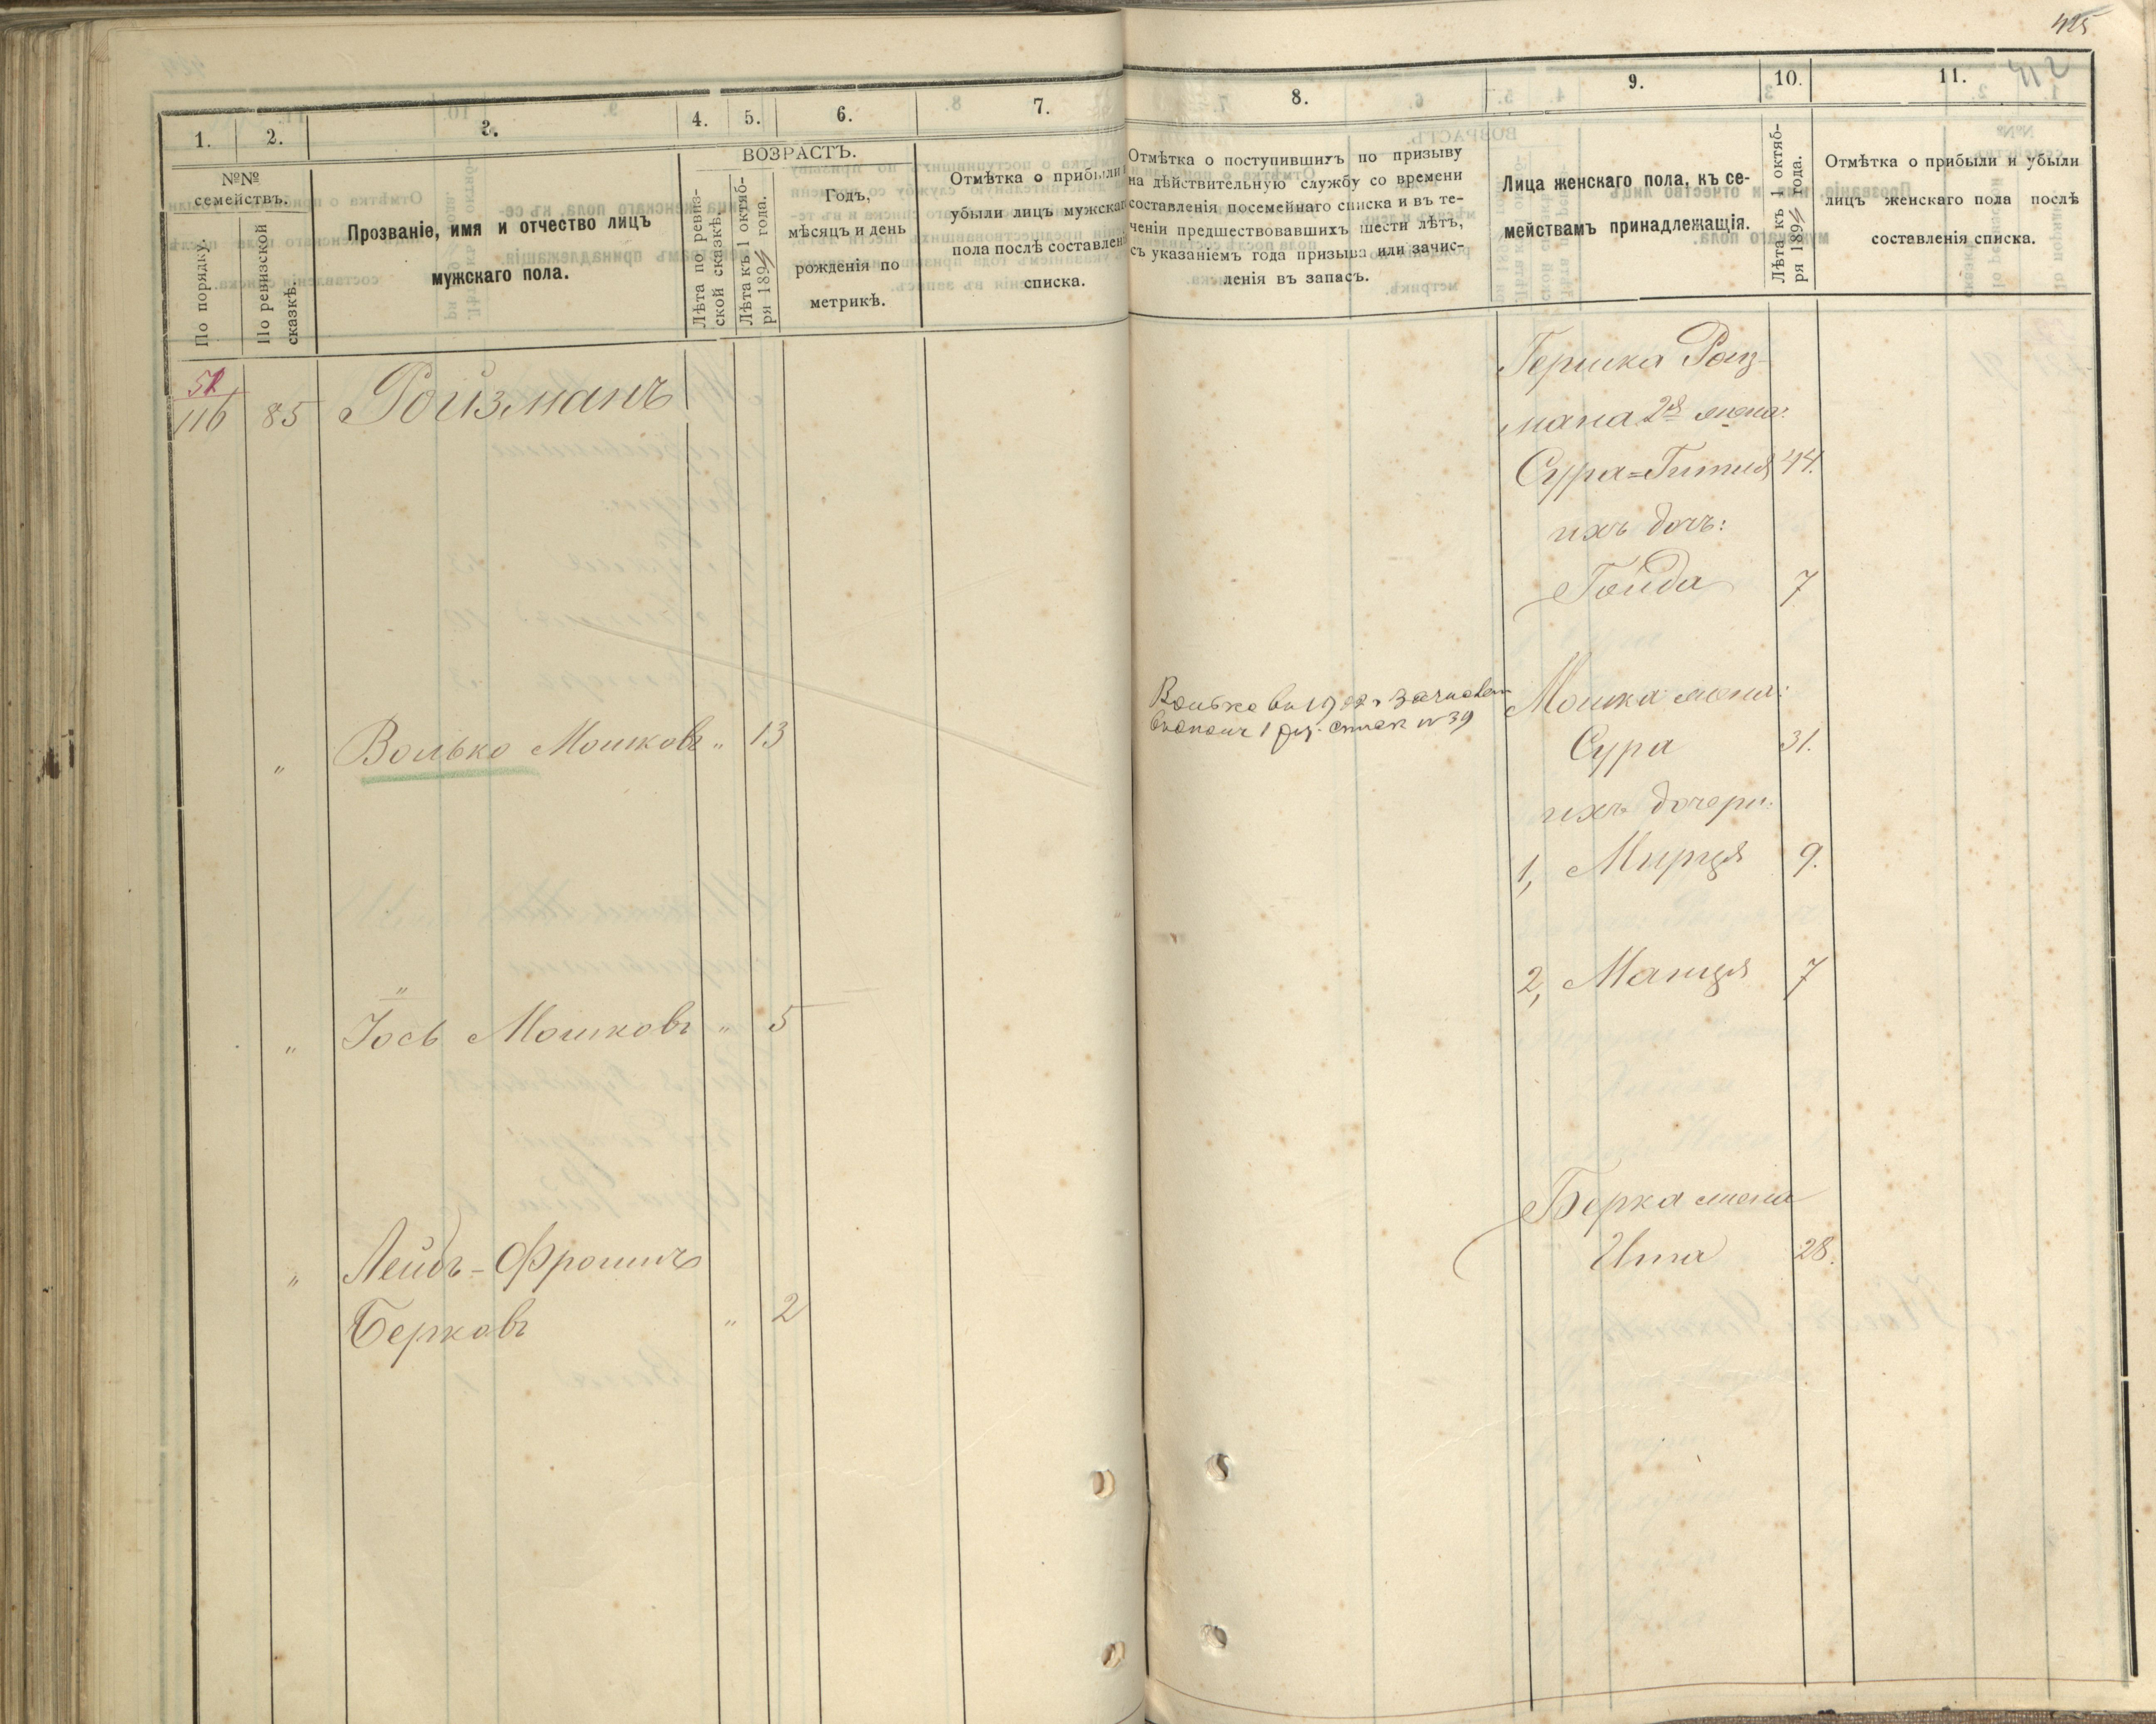 425
412
1.
2.
3.
4.
5.
6.
7.
№№
семействъ.
По порядку.
По ревизской
сказкѣ.
Прозваніе, имя и отчество лицъ
мужскаго пола.
ВОЗРАСТЪ.
Лѣта по ревиз-
ской сказкѣ.
Лѣта къ 1 октяб-
ря 1894 года.
Годъ,
мѣсяцъ и день
рожденія по
метрикѣ.
Отмѣтка о прибыли
убыли лицъ мужскаг
пола послѣ составлен
списка.
51
116
85
Ройзманъ
" Волько Мошковъ " 13
"
" Іось Мошковъ " 5
" Лейбъ-Фроимъ
Берковъ " 2
8.
9.
10.
11.
Отмѣтка о поступившихъ по призыву
на дѣйствительную службу со времени
составленія посемейнаго списка и въ те-
ченіи предшествовавшихъ шести лѣтъ,
съ указаніемъ года призыва или зачис-
ленія въ запасъ.
Лица женскаго пола, къ се-
мействамъ принадлежащія.
Лѣта къ 1 октяб-
ря 1894 года.
Отмѣтка о прибыли и убыли
лицъ женскаго пола послѣ
составленія списка.
Гершка Роиз-
мана 2я жена:
Сура=Гитля 44.
ихъ дочь:
Гойда 7
Волько въ 19
1 спис № 39
Мошка жена:
Сура 31.
ихъ дочери:
1, Мирця 9.
2, Манця 7
Берка жена
Ита 28.